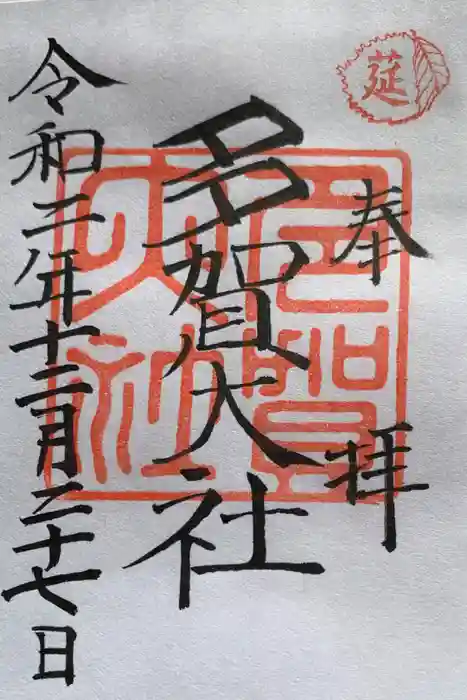 莚
奉拝
多賀大社
多賀大社
令和二年十二月二十七日